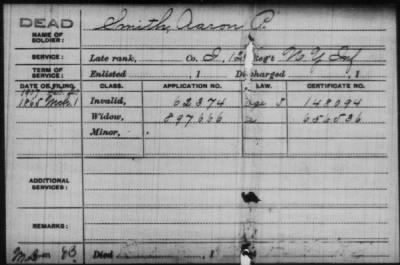 DEAD
NAME OF SOLDIER: Smith, Aaron P.
SERVICE: Late rank, Co. I, 12 Reg't N.Y. Inf
TERM OF SERVICE: Enlisted , 1 Discharged , 1
DATE OF FILING. CLASS. APPLICATION NO. LAW. CERTIFICATE NO.
1865 Mch. 1 Invalid, 62374 148094
Widow, 897666 656536
Minor,
ADDITIONAL SERVICES:
REMARKS:
Died